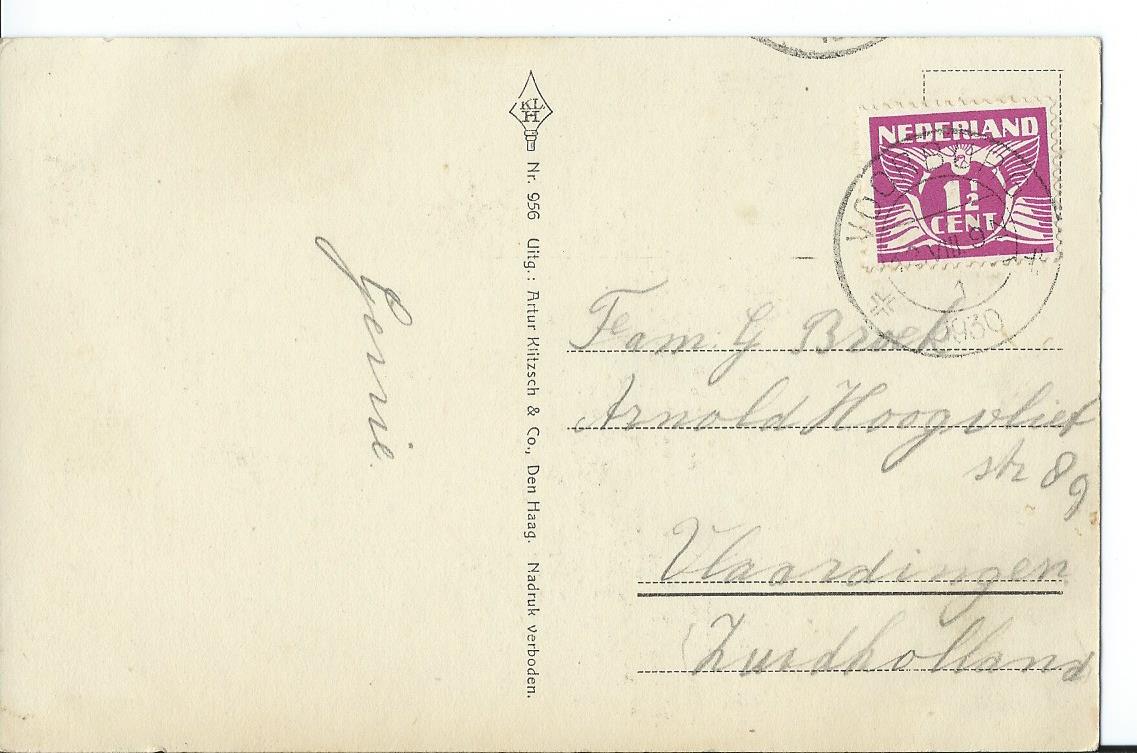 KL.
H
Nr. 956 Uitg.: Artur Klitzsch & Co., Den Haag. Nadruk verboden.
NEDERLAND
1½
CENT
1930
Gerrie.
Fam. G Broek
Arnold Hoogvliet
str 89
Vlaardingen
Zuidholland